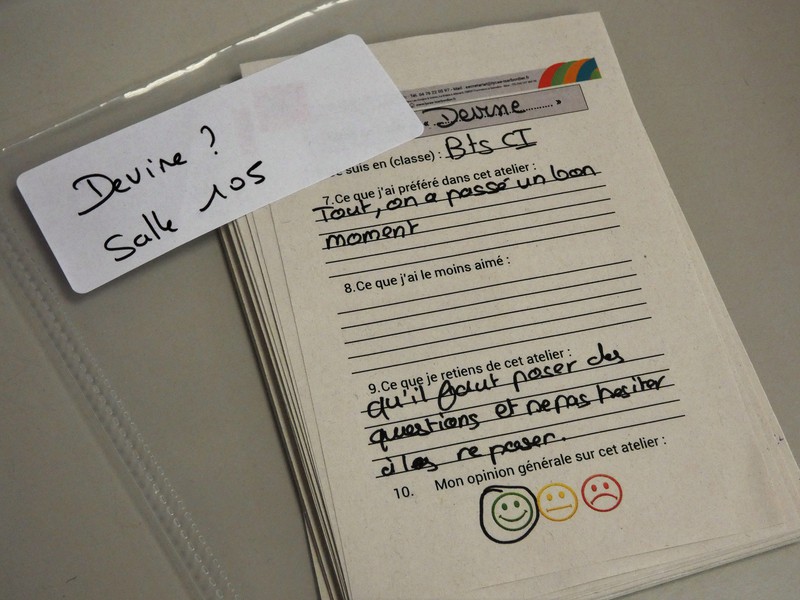 Devine ?
Salle 105
« ..Devine.......... »
suis en (classe) : Bts CI
7.Ce que j'ai préféré dans cet atelier :
Tout, on a passé un bon
moment
8.Ce que j'ai le moins aimé :
9.Ce que je retiens de cet atelier :
qu'il faut poser des
questions et ne pas hesiter
à les reposer.
10. Mon opinion générale sur cet atelier :